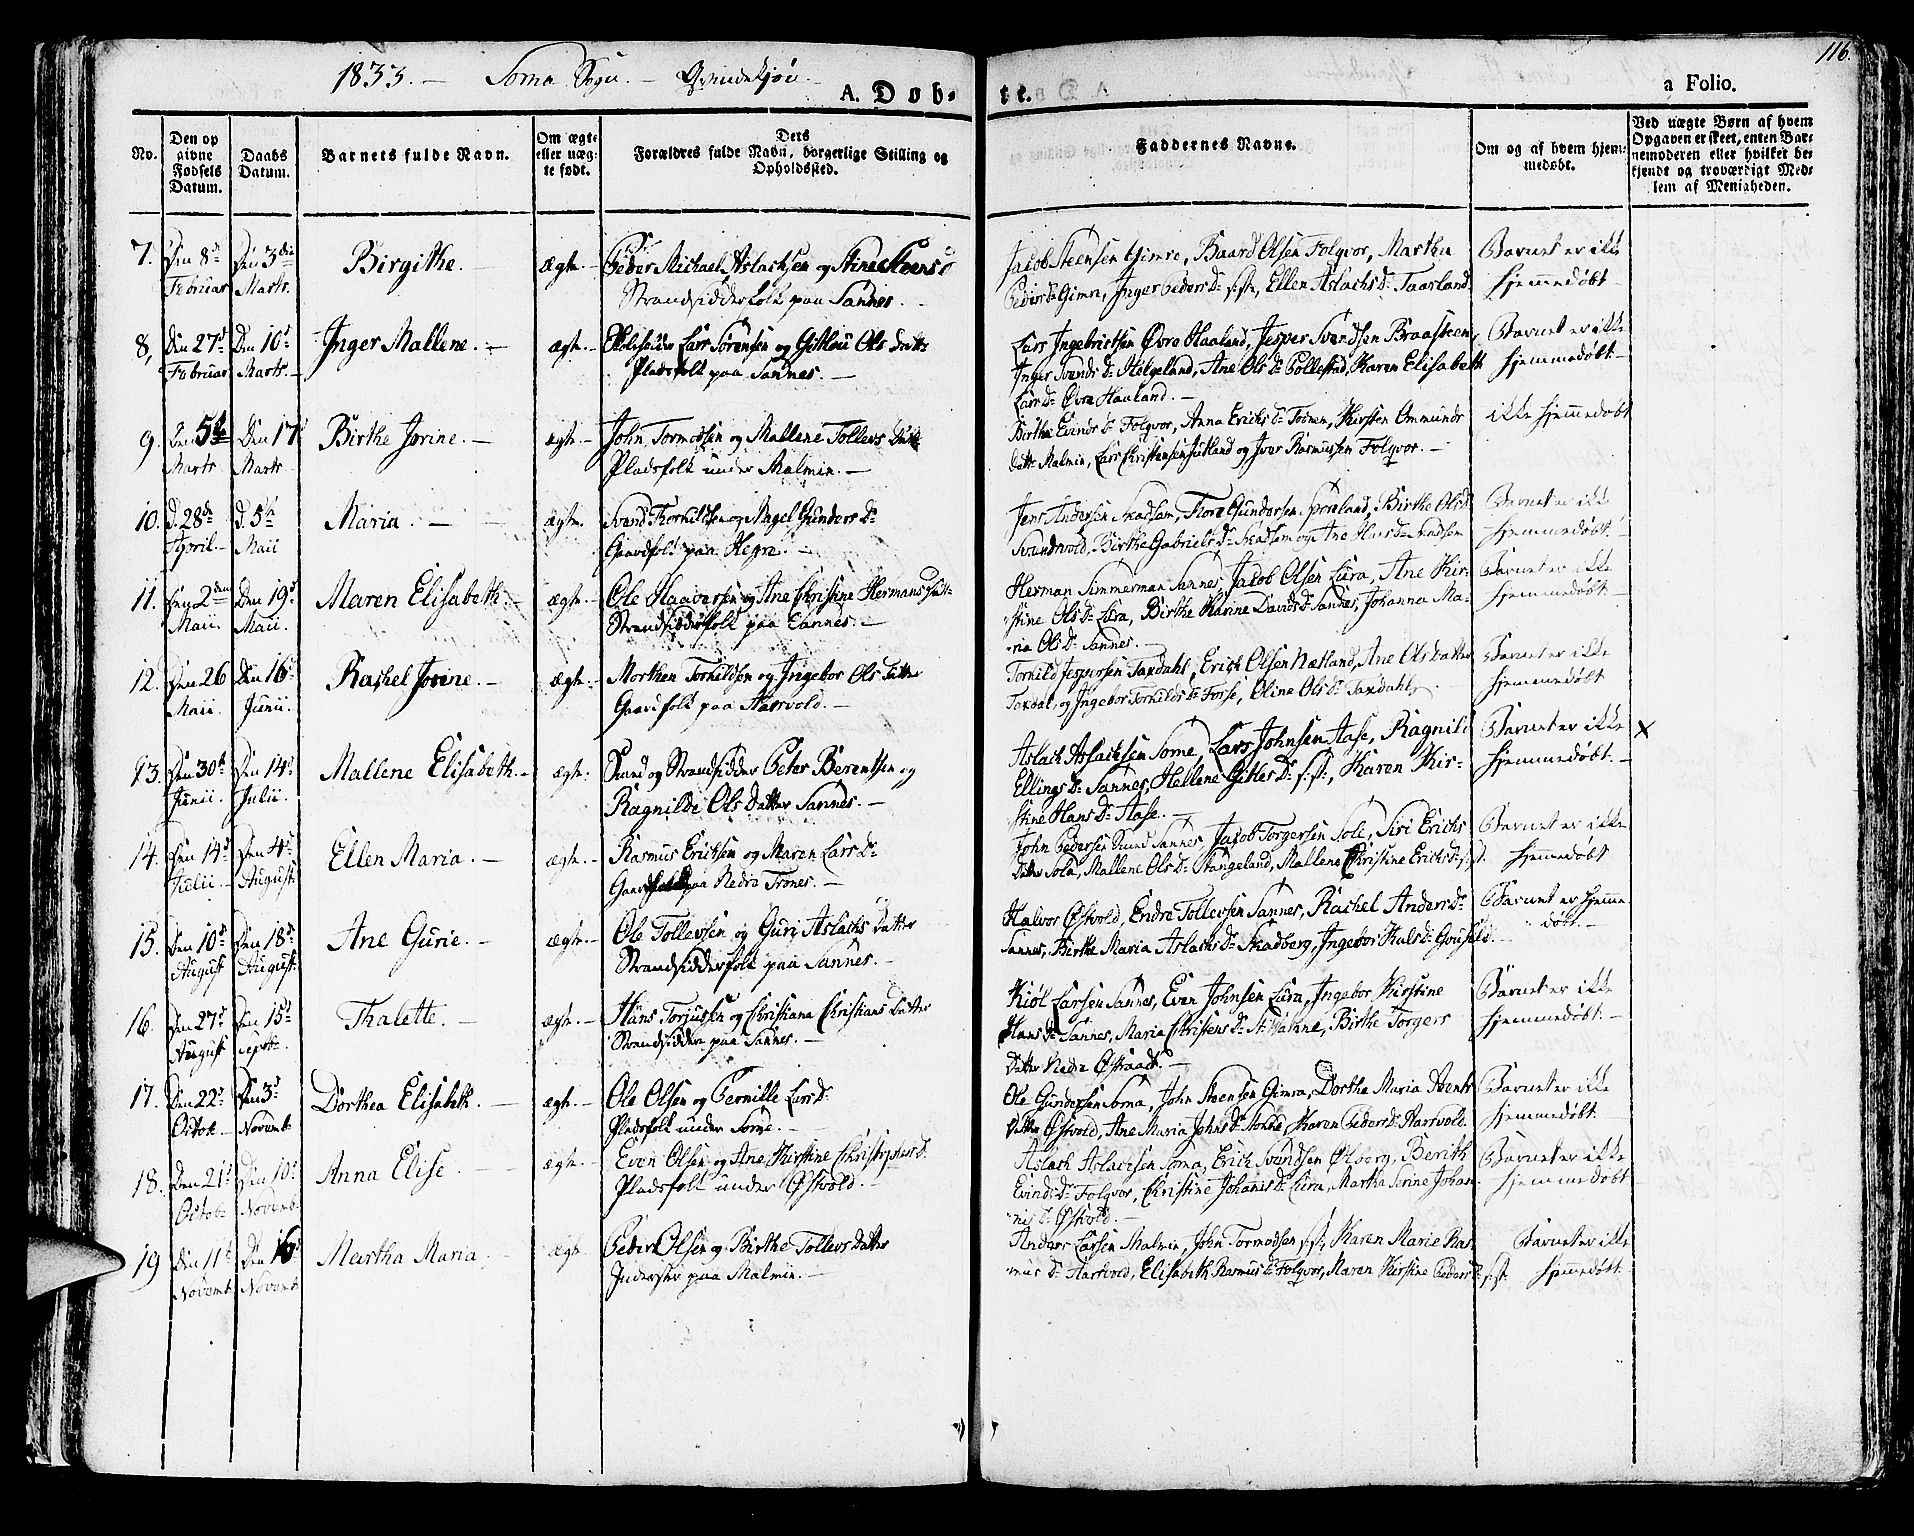 116.
1833. — Soma Sogn. — Qvindekjøn.
A. Døb- te. a Folio.
No.
Den opgivne Fødsels Datum.
Daabs Datum.
Barnets fulde Navn.
Om ægte eller uægte født.
Dets Forældres fulde Navn, borgerlige Stilling og Opholdssted.
Faddernes Navne.
Om og af hvem hjemmedøbt.
Ved uægte Børn af hvem Opgaven er skeet, enten Barnemoderen eller hvilket bekjendt og troværdigt Medlem af Menigheden.
7. Den 8de Februar Den 3die Marts Birgithe. — ægte. Peder Michael Aslachsen og Stine
Strandsidderfolk paa Sannes.
Jacob Steensen Gimre, Baard Olsen Folqvor, Martha
Peders Dr Gimre, Inger Peders Dr sst., Ellen Aslachs Dr Taarland
Barnet er ikke
hjemmedøbt
8, Den 27d Februar Den 10d Marts Inger Mallene. — ægte. Lars Sørensen og Ols Datter
Pladsfolk paa Sannes. —
Lars Ingebrictsen Øvre Haaland, Jesper Svendsen Braasteen,
Inger Svends Dr Helgeland, Ane Ols Dr Gollestad, Karen Elisabeth
Lars Dr Øvre Haaland. —
Barnet er ikke
hjemmedøbt
9. Den 5te Marts Den 17d Marts Birthe Jorine. — ægte. John Tormodsen og Mallene Tollevs Datter
Pladsfolk under Malmin. —
Birthe Evinds Dr Folqvor, Anna Erichs Dr Kirsten Ommunds
datter Malmin, Lars Christensen Jutland og Ivar Rasmussen Folqvor. —
ikke hjemmedøbt
10. D. 28de April D. 5te Maii Maria. — ægte. Svend Thorkildsen og Angel Gunders Dr
Gaardfolk paa Hegre. —
Jens Andersen Skadsem, Tore Gundersen Spræland, Birthe Ols Dr
Birthe Gabriels Dr Skadsem og Ane Hans Dr Skadsem
Barnet er ikke
hjemmedøbt
11. Den 2den Maii Den 19d Maii. Maren Elisabeth. — ægte. Ole Haaversen og Ane Christine Hermans Datter
Strandsidderfolk paa Sannes. —
Herman Simmerman Sannes, Jacob Olsen Lura, Ane Kir-
stine Ols Dr Lura, Birthe Karine Davids Dr Sannes, Johanna Ma-
ria Ols Dr Sannes.
Barnet er ikke
hjemmedøbt
12. Den 26 Maii Den 16d Junii. Rachel Jorine. — ægte. Morthen Torkildsen og Ingebor Ols Datter
Gaardfolk paa Aarvold. —
Torkild Jespersen Taxdahl, Erich Olsen Netland, Ane Ols Datter
Taxdal, og Ingebor Torkilds Dr Forse, Oline Ols Dr Taxdahl.
Barnet er ikke
hjemmedøbt
13. Den 30te Junii. Den 14d Julii. Mallene Elisabeth. — ægte. og Strandsidder Peter Berentsen og
Ragnilde Ols Datter Sannes. —
Aslach Aslachsen Some, Lars Johnsen Aase, Ragnild
Ellings Dr Sannes, Hellene Gitles Dr sst., Karen Kir-
stine Hans Dr Aase. —
Barnet er ikke
hjemmedøbt.
×
14. Den 14d Julii Den 4d August Ellen Maria. — ægte. — Rasmus Erichsen og Maren Lars Dr
Gaardfolk paa Nedre Trones. —
John Pedersen Sannes, Jacob Torgersen Sole, Siri Erichs
Datter Sola, Mallene Ols Dr Stangeland, Mallene Christine Erichs Dr sst.
Barnet er ikke
hjemmedøbt
15. Den 10d August Den 18d August Ane Gurie. — ægte. — Ole Tollevsen og Guri Aslachs Datter
Strandsidderfolk paa Sannes. —
Halvor Østvold, Endre Tollevsen Sannes, Rachel Anders Dr
Sannes, Birthe Maria Aslachs Dr Skadberg, Ingebor
Barnet er hjemme
døbt. —
16. Den 27d August Den 15d Septbr. Thalette. — ægte. — Hans Torjussen og Christiana Christians Datter
Strandsidder paa Sannes. —
Kiøl Larsen Sannes, Even Johnsen Lura, Ingebor Kirstine
Hans Dr Sannes, Maria Christens Dr Birthe Torgers
Datter Nedre Østraadt. —
Barnet er ikke
hjemmedøbt. —
17. Den 22d Octob. Den 3d Novemb. Dorthea Elisabeth. — ægte. — Ole Olsen og Pernille Lars Dr
Pladsfolk under Some. —
Ole Gundersen Soma, John Steensen Gimra, Dorthe Maria
Datter Østvold, Ane Maria Johns Dr Karen Peders Dr Aarvold.
Barnet er ikke
hjemmedøbt
18. Den 21d Octob. Den 10d Novemb. Anna Elise ægte. — Even Olsen og Ane Kirstine Christophers D.
Pladsfolk under Østvold. —
Aslach Aslachsen Soma, Erich Svendsen Ølberg, Berith
Evinds Dr Folqvor, Christine Johanis Dr Lura, Martha Serine Johan-
nis Dr Østvold. —
Barnet er ikke
hjemmedøbt
19 Den 11te Novemb. Den 16d Novemb. Martha Maria ægte Peder Olsen og Birthe Tollevs Datter
Inderster paa Malmin. —
Anders Larsen Malmin, John Tormodsen sst., Karen Marie Ras-
mus Dr Aarvold, Elisabeth Rasmus Dr Folqvor, Maren Kirstine Peders Dr sst.
Barnet er ikke
hjemmedøbt.